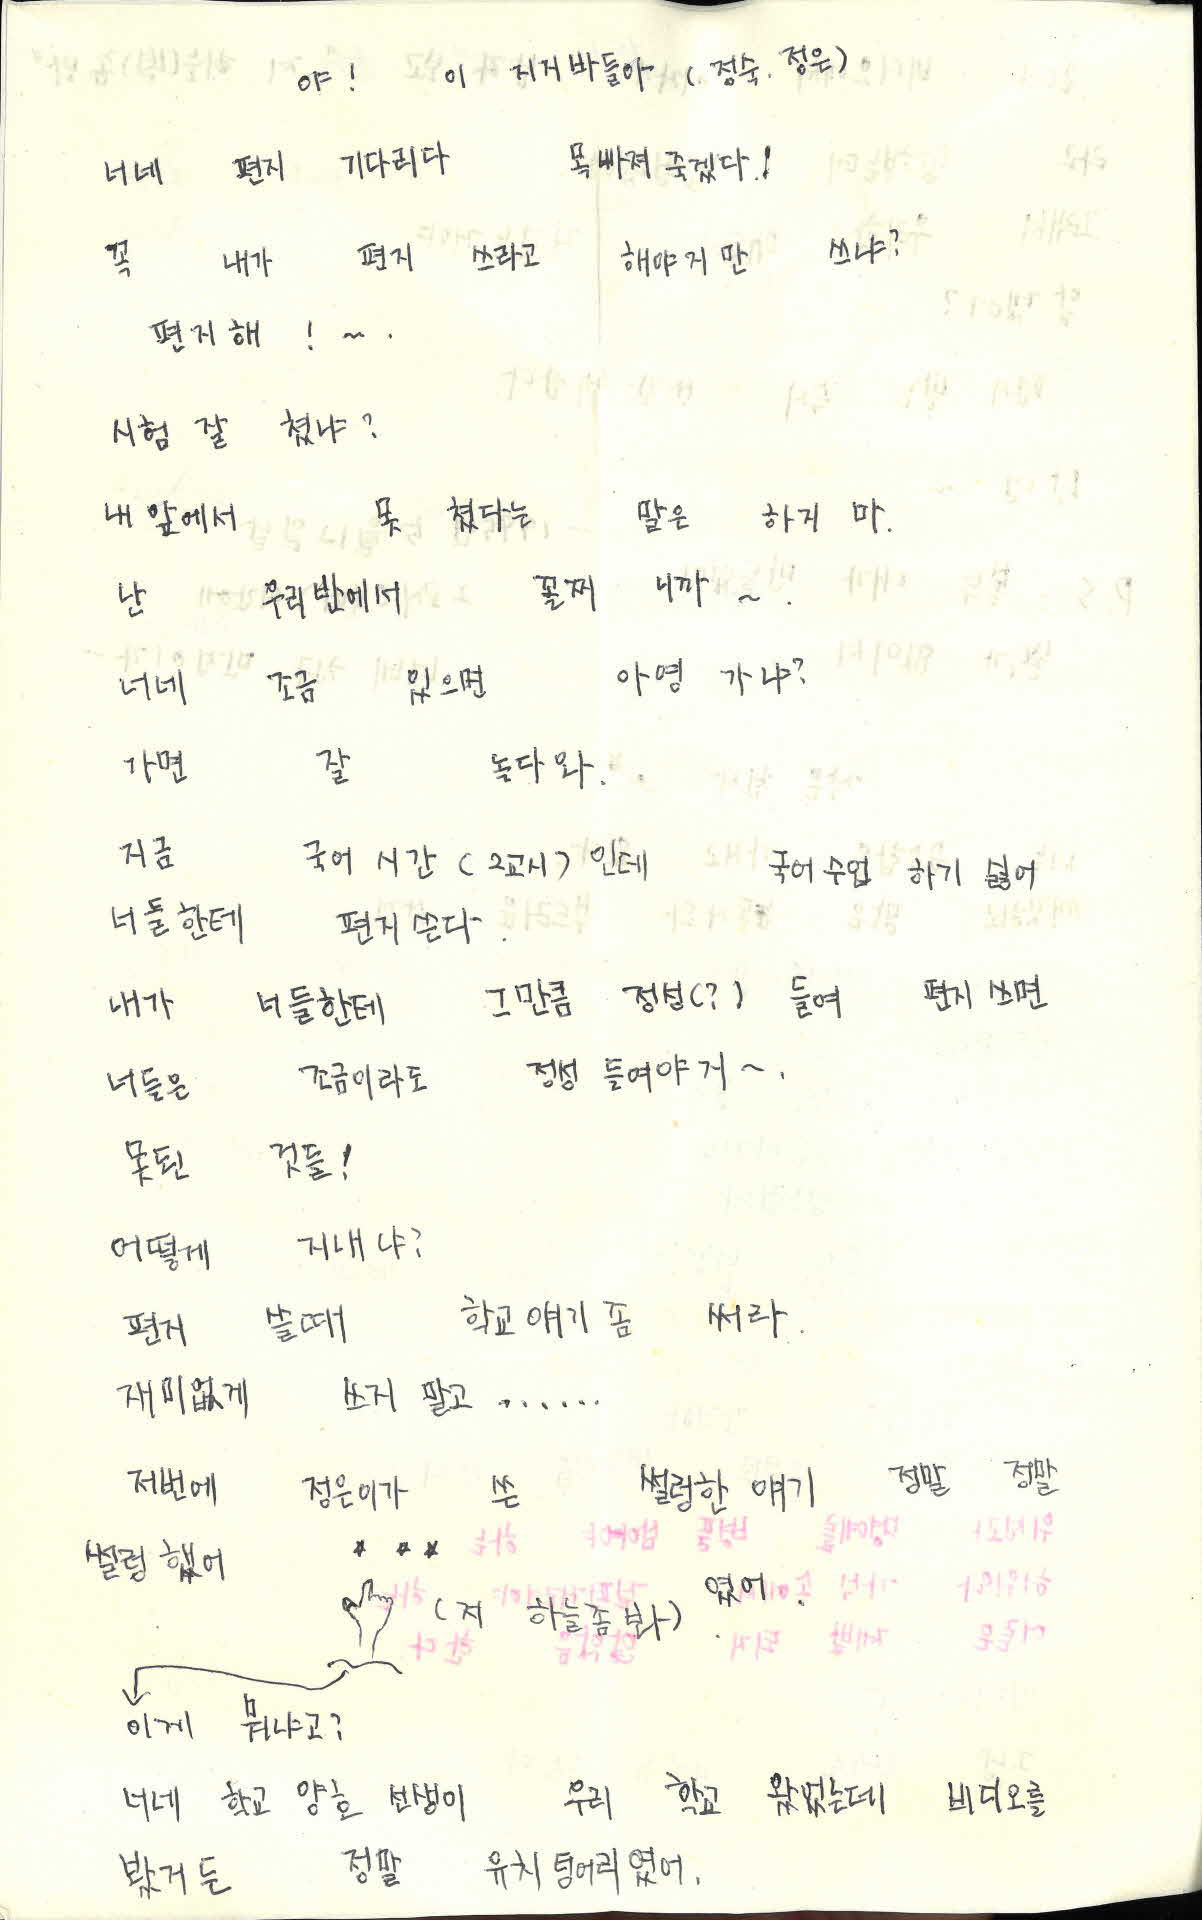 야! 이 지지바들아 (정숙, 정은)
너네 편지 기다리다 목빠져 죽겠다!
꼭 내가 편지 쓰라고 해야지만 쓰냐?
편지해 ! ~ .
시험 잘 쳤냐?
내 앞에서 못 쳤다는 말은 하지 마.
난 우리반에서 꼴찌 니까 ~ .
너네 조금 있으면 야영 가냐?
가면 잘 놀다 와.
지금 국어 시간 (2교시) 인데 국어 수업 하기 싫어
너들한테 편지 쓴다.
내가 너들한테 그만큼 정성(?) 들여 편지 쓰면
너들은 조금이라도 정성 들여야 지~.
못된 것들!
어떻게 지내냐?
편지 쓸때 학교 얘기 좀 써라.
재미없게 쓰지 말고 ......
저번에 정은이가 쓴 썰렁한 얘기 정말 정말
썰렁 했어
(저 하늘좀 봐) 였어.
이게 뭐냐고?
너네 학교 양호 선생이 우리 학교 왔었는데 비디오를
봤거든 정말 유치 덩어리였어.